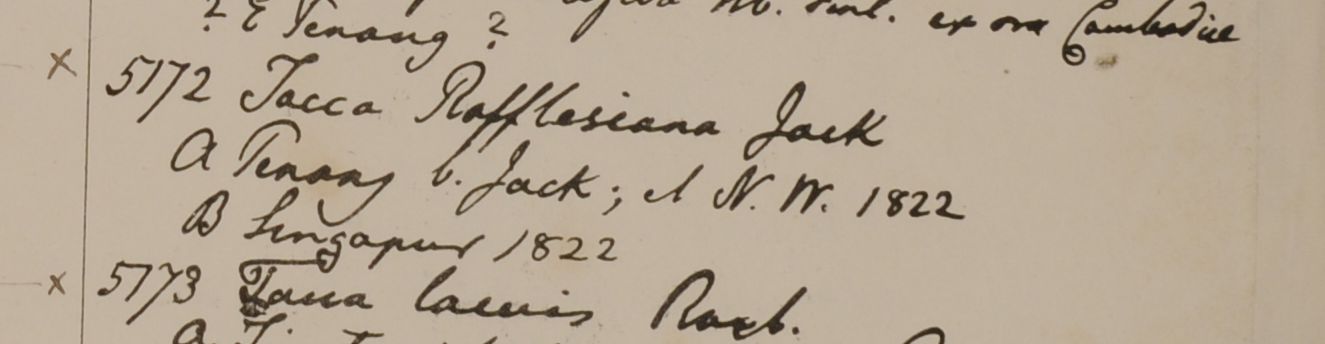 ? E Penang ? ex ora Cambodiae
x 5172 Tacca Rafflesiana Jack
A Penang b. Jack; et N. W. 1822
B Singapur 1822
x 5173 Tacca laevis Roxb.